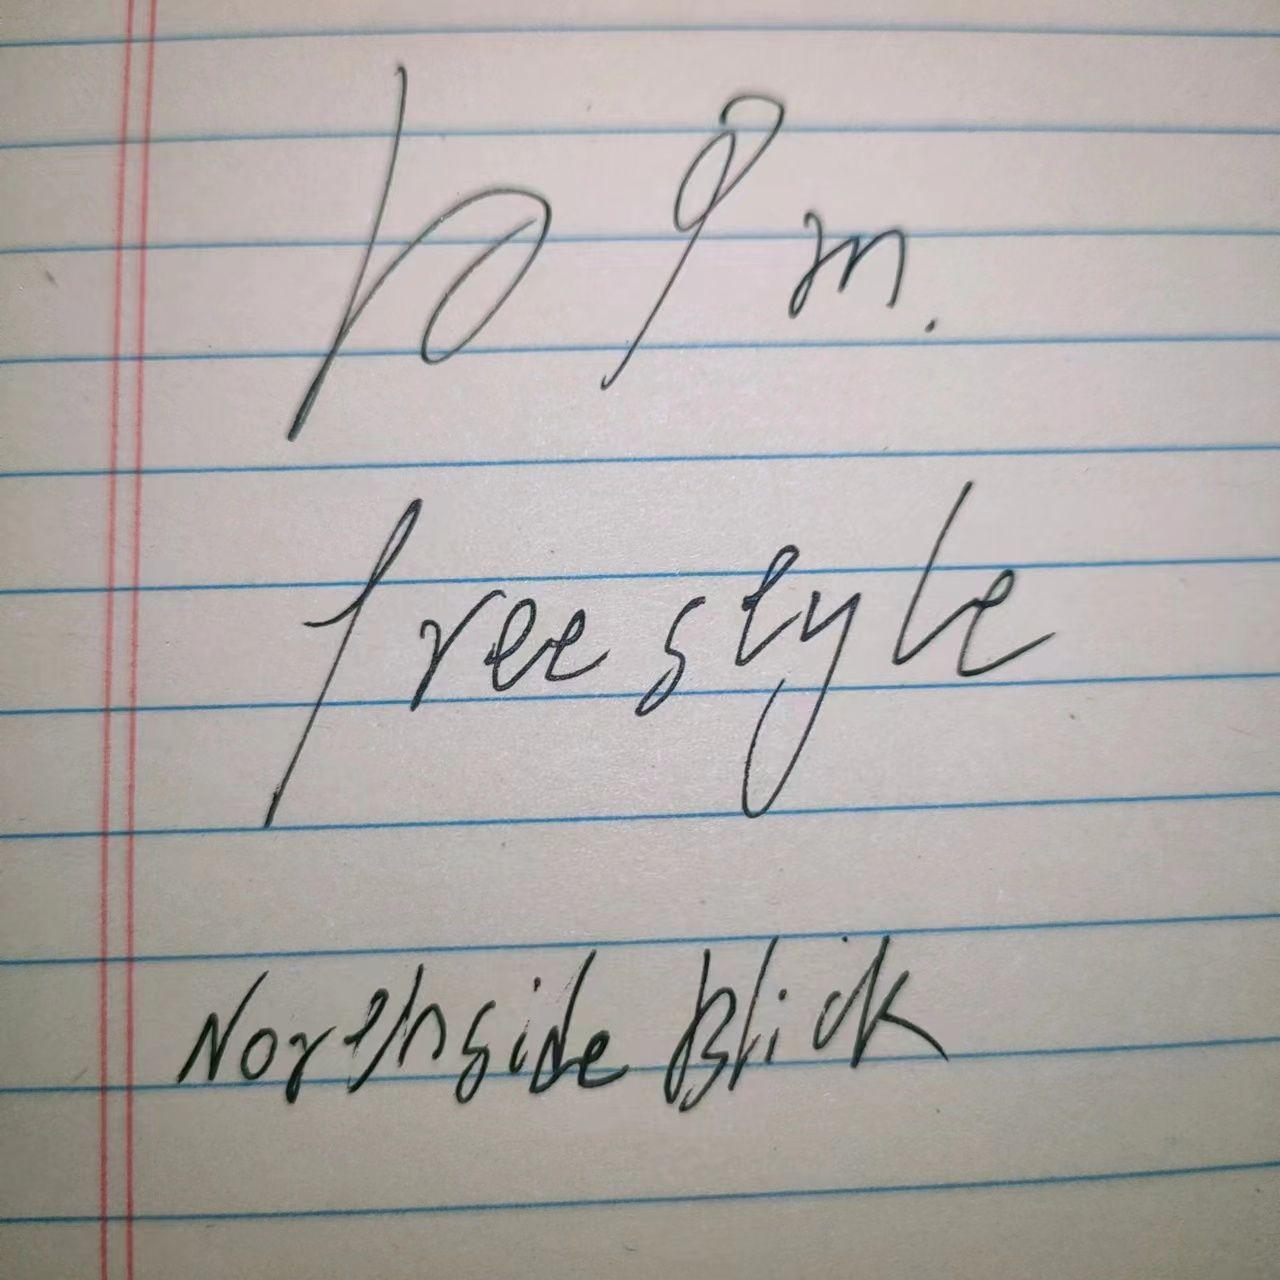 freestyle
Northside Blick